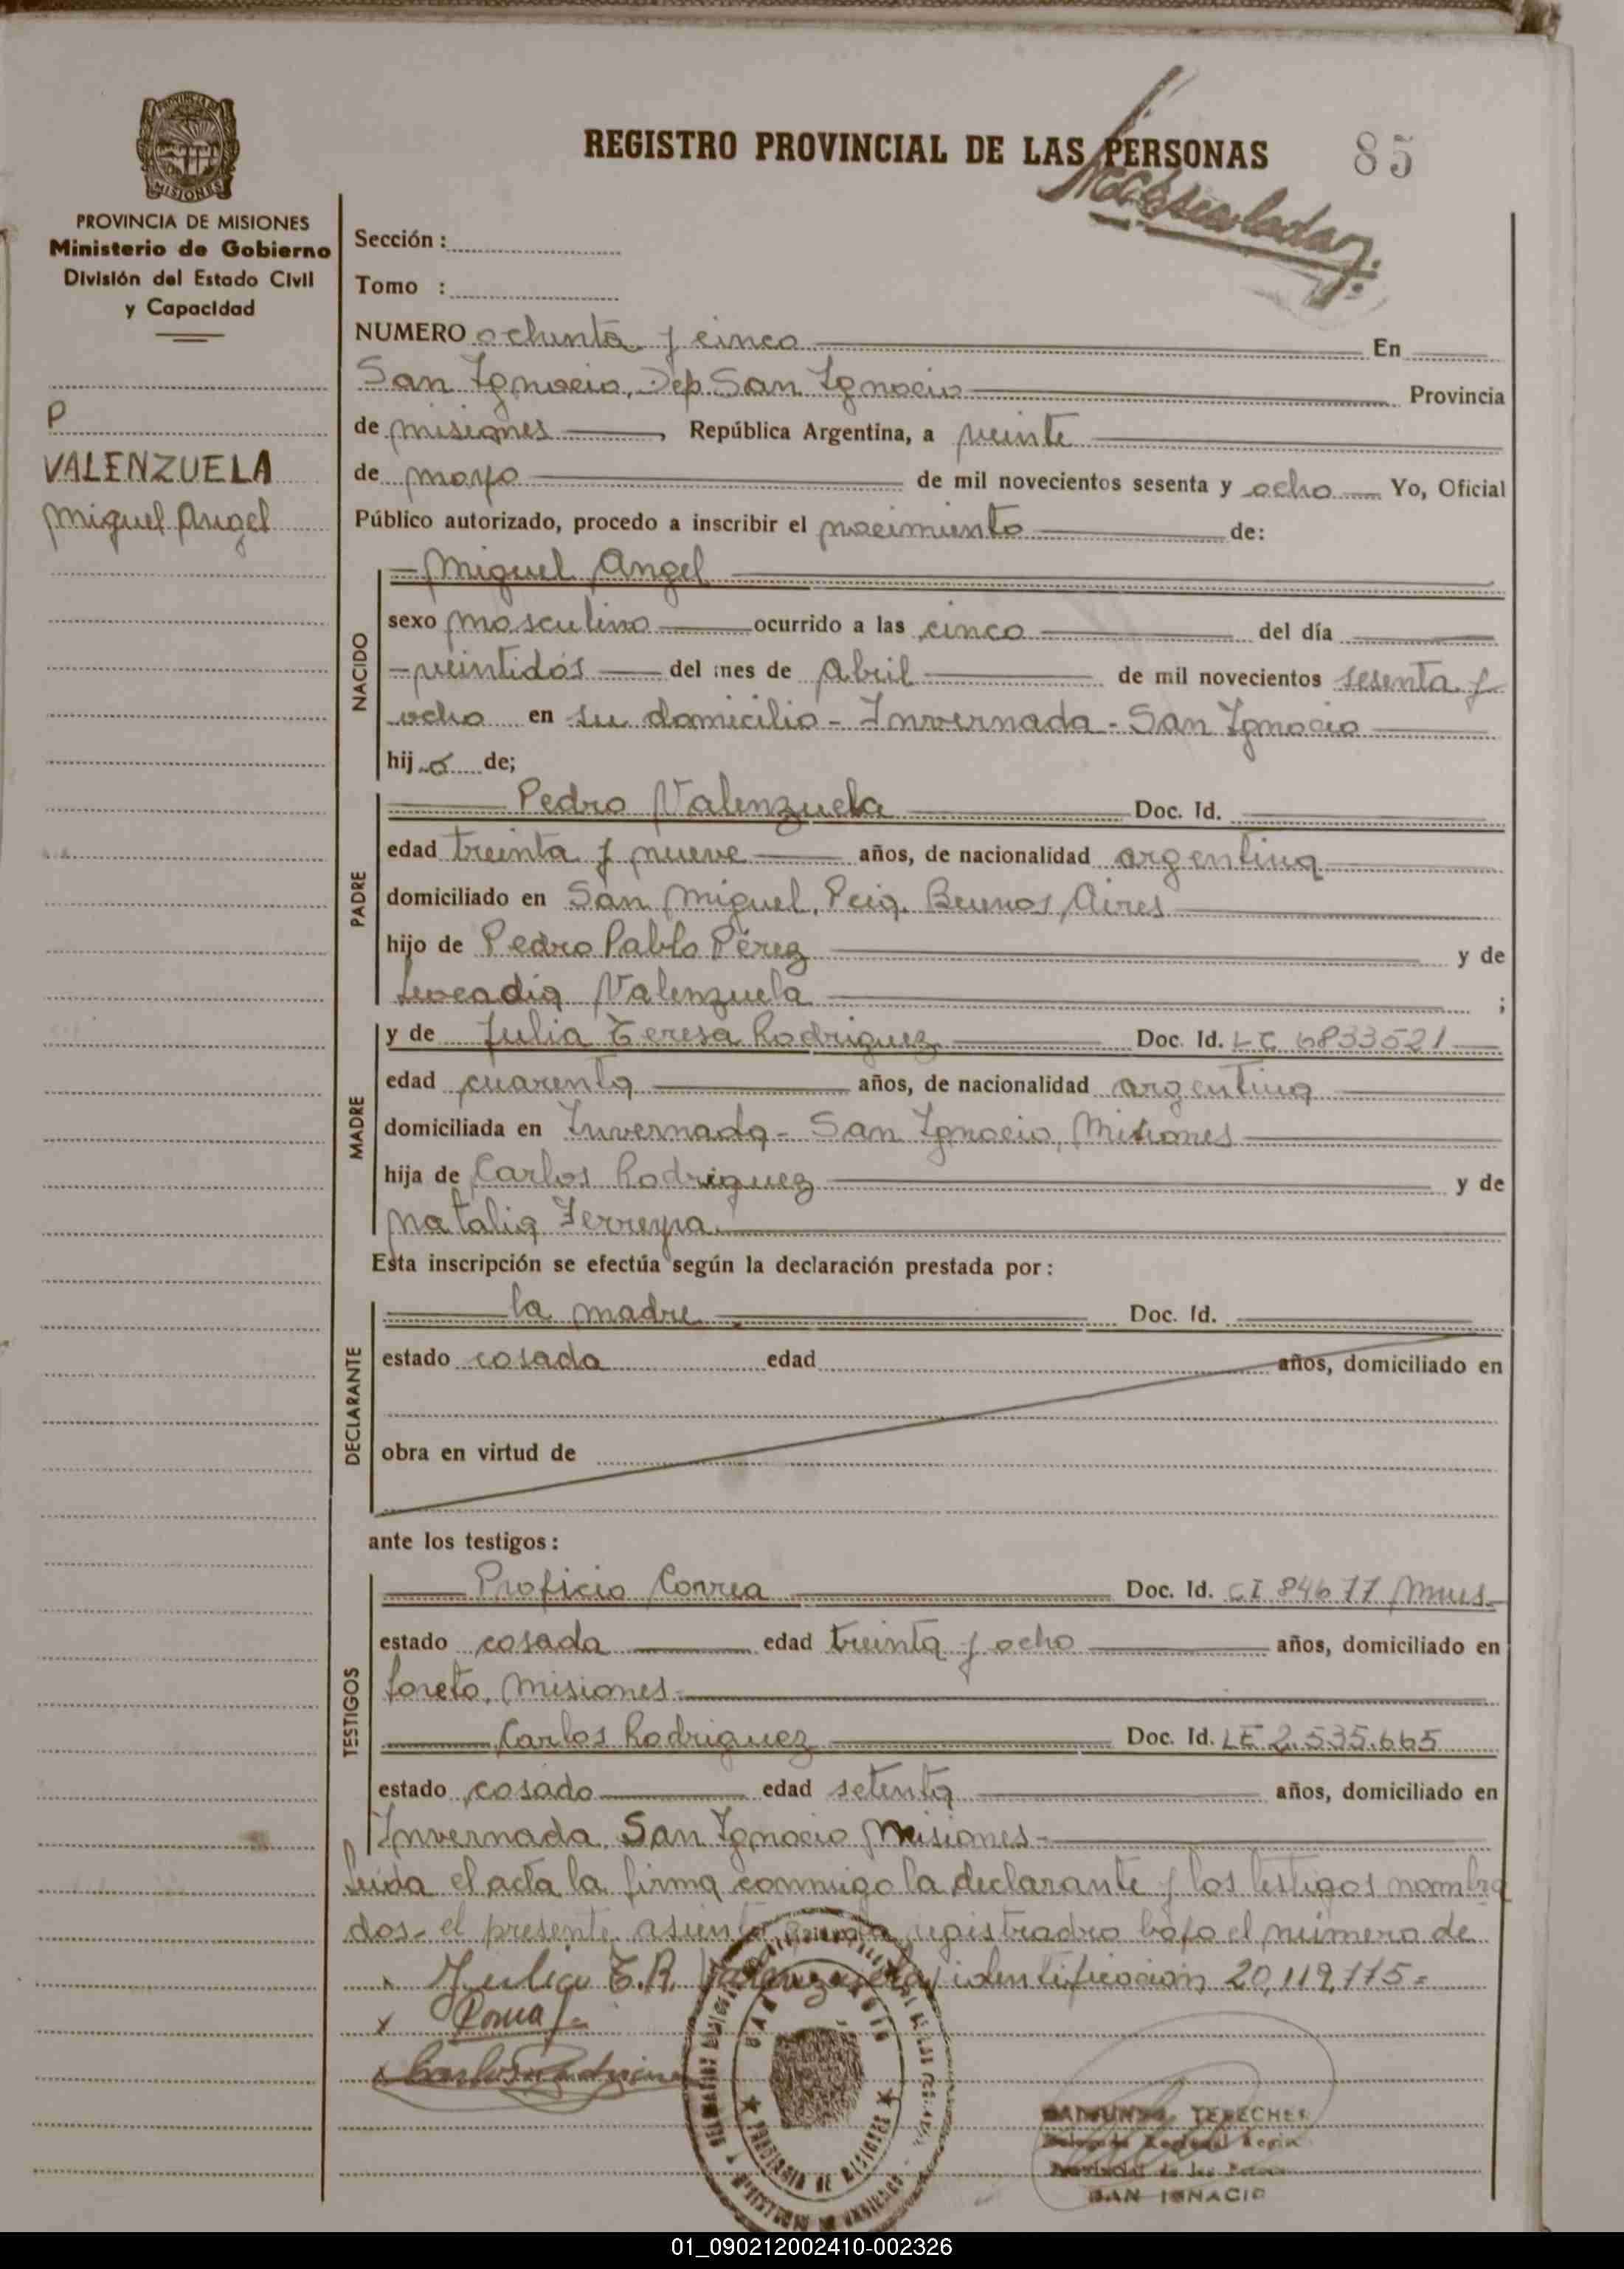 REGISTRO PROVINCIAL DE LAS PERSONAS
85
PROVINCIA DE MISIONES
Ministerio de Gobierno
División del Estado Civil
y Capacidad
P
VALENZUELA
Miguel Angel
Sección :
Tomo :
NUMERO ochenta y cinco En
San Ignacio, Dep. San Ignacio Provincia
de misiones, República Argentina, a veinte
de mayo de mil novecientos sesenta y ocho Yo, Oficial
Público autorizado, procedo a inscribir el nacimiento de:
NACIDO
Miguel Angel
sexo masculino ocurrido a las cinco del día
veintidós del mes de Abril de mil novecientos sesenta y
ocho en su domicilio - Invernada - San Ignacio
hijo de;
PADRE
Pedro Valenzuela Doc. Id.
edad treinta y nueve años, de nacionalidad argentina
domiciliado en San Miguel, Buenos Aires
hijo de Pedro Pablo Pérez y de
Leocadia Valenzuela ;
MADRE
y de Julia Teresa Rodriguez Doc. Id. LC 6833521
edad cuarenta años, de nacionalidad argentina
domiciliada en Invernada - San Ignacio, Misiones
hija de Carlos Rodriguez y de
Natalia Ferreyra
Esta inscripción se efectúa según la declaración prestada por :
DECLARANTE
la madre Doc. Id.
estado casada edad años, domiciliado en
obra en virtud de
ante los testigos :
TESTIGOS
Proficio Correa Doc. Id. CI 84677 Mnes.
estado casada edad treinta y ocho años, domiciliado en
Loreto, Misiones
Carlos Rodriguez Doc. Id. LE 2.535.665
estado casado edad setenta años, domiciliado en
Invernada, San Ignacio Misiones
Leída el acta la firma conmigo la declarante y los testigos nombra
dos - el presente asiento registradro bajo el número de
Julia T. R. Valenzuela identificación 20,119,115=
x
x Carlos Rodriguez
PROVINCIA DE MISIONES
TERECHES
SAN IGNACIO
01_090212002410-002326